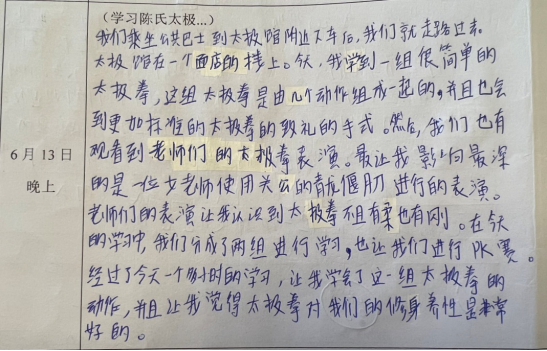 (学习陈氏太极...)
我们乘坐公共巴士到太极馆附近下车后,我们就走路过去。
太极馆在一个面店的楼上。今天,我学到一组很简单的
太极拳,这组太极拳是由几个动作组成一起的,并且也会
到更加标准的太极拳的敬礼的手式。然后,我们也有
观看到老师们的太极拳表演。最让我影响最深
的是一位女老师使用关公的青龙偃月刀进行的表演。
老师们的表演让我认识到太极拳不且有柔也有刚。在今天
的学习中,我们分成了两组进行学习,也让我们进行PK赛。
经过了今天一个小时的学习,让我学会了这一组太极拳的
6月13日
晚上
动作,并且让我觉得太极拳对我们的修身养性是非常
好的。